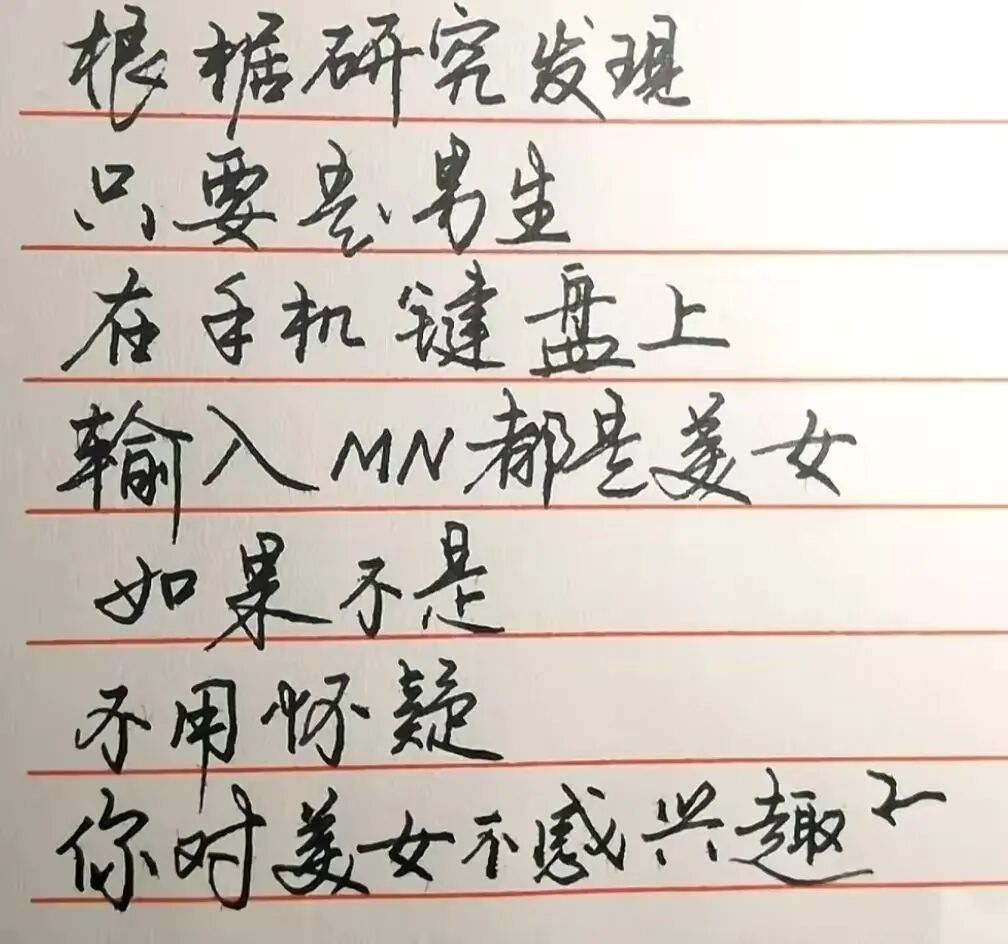 根据研究发现
只要是男生
在手机键盘上
输入MN都是美女
如果不是
不用怀疑
你对美女不感兴趣